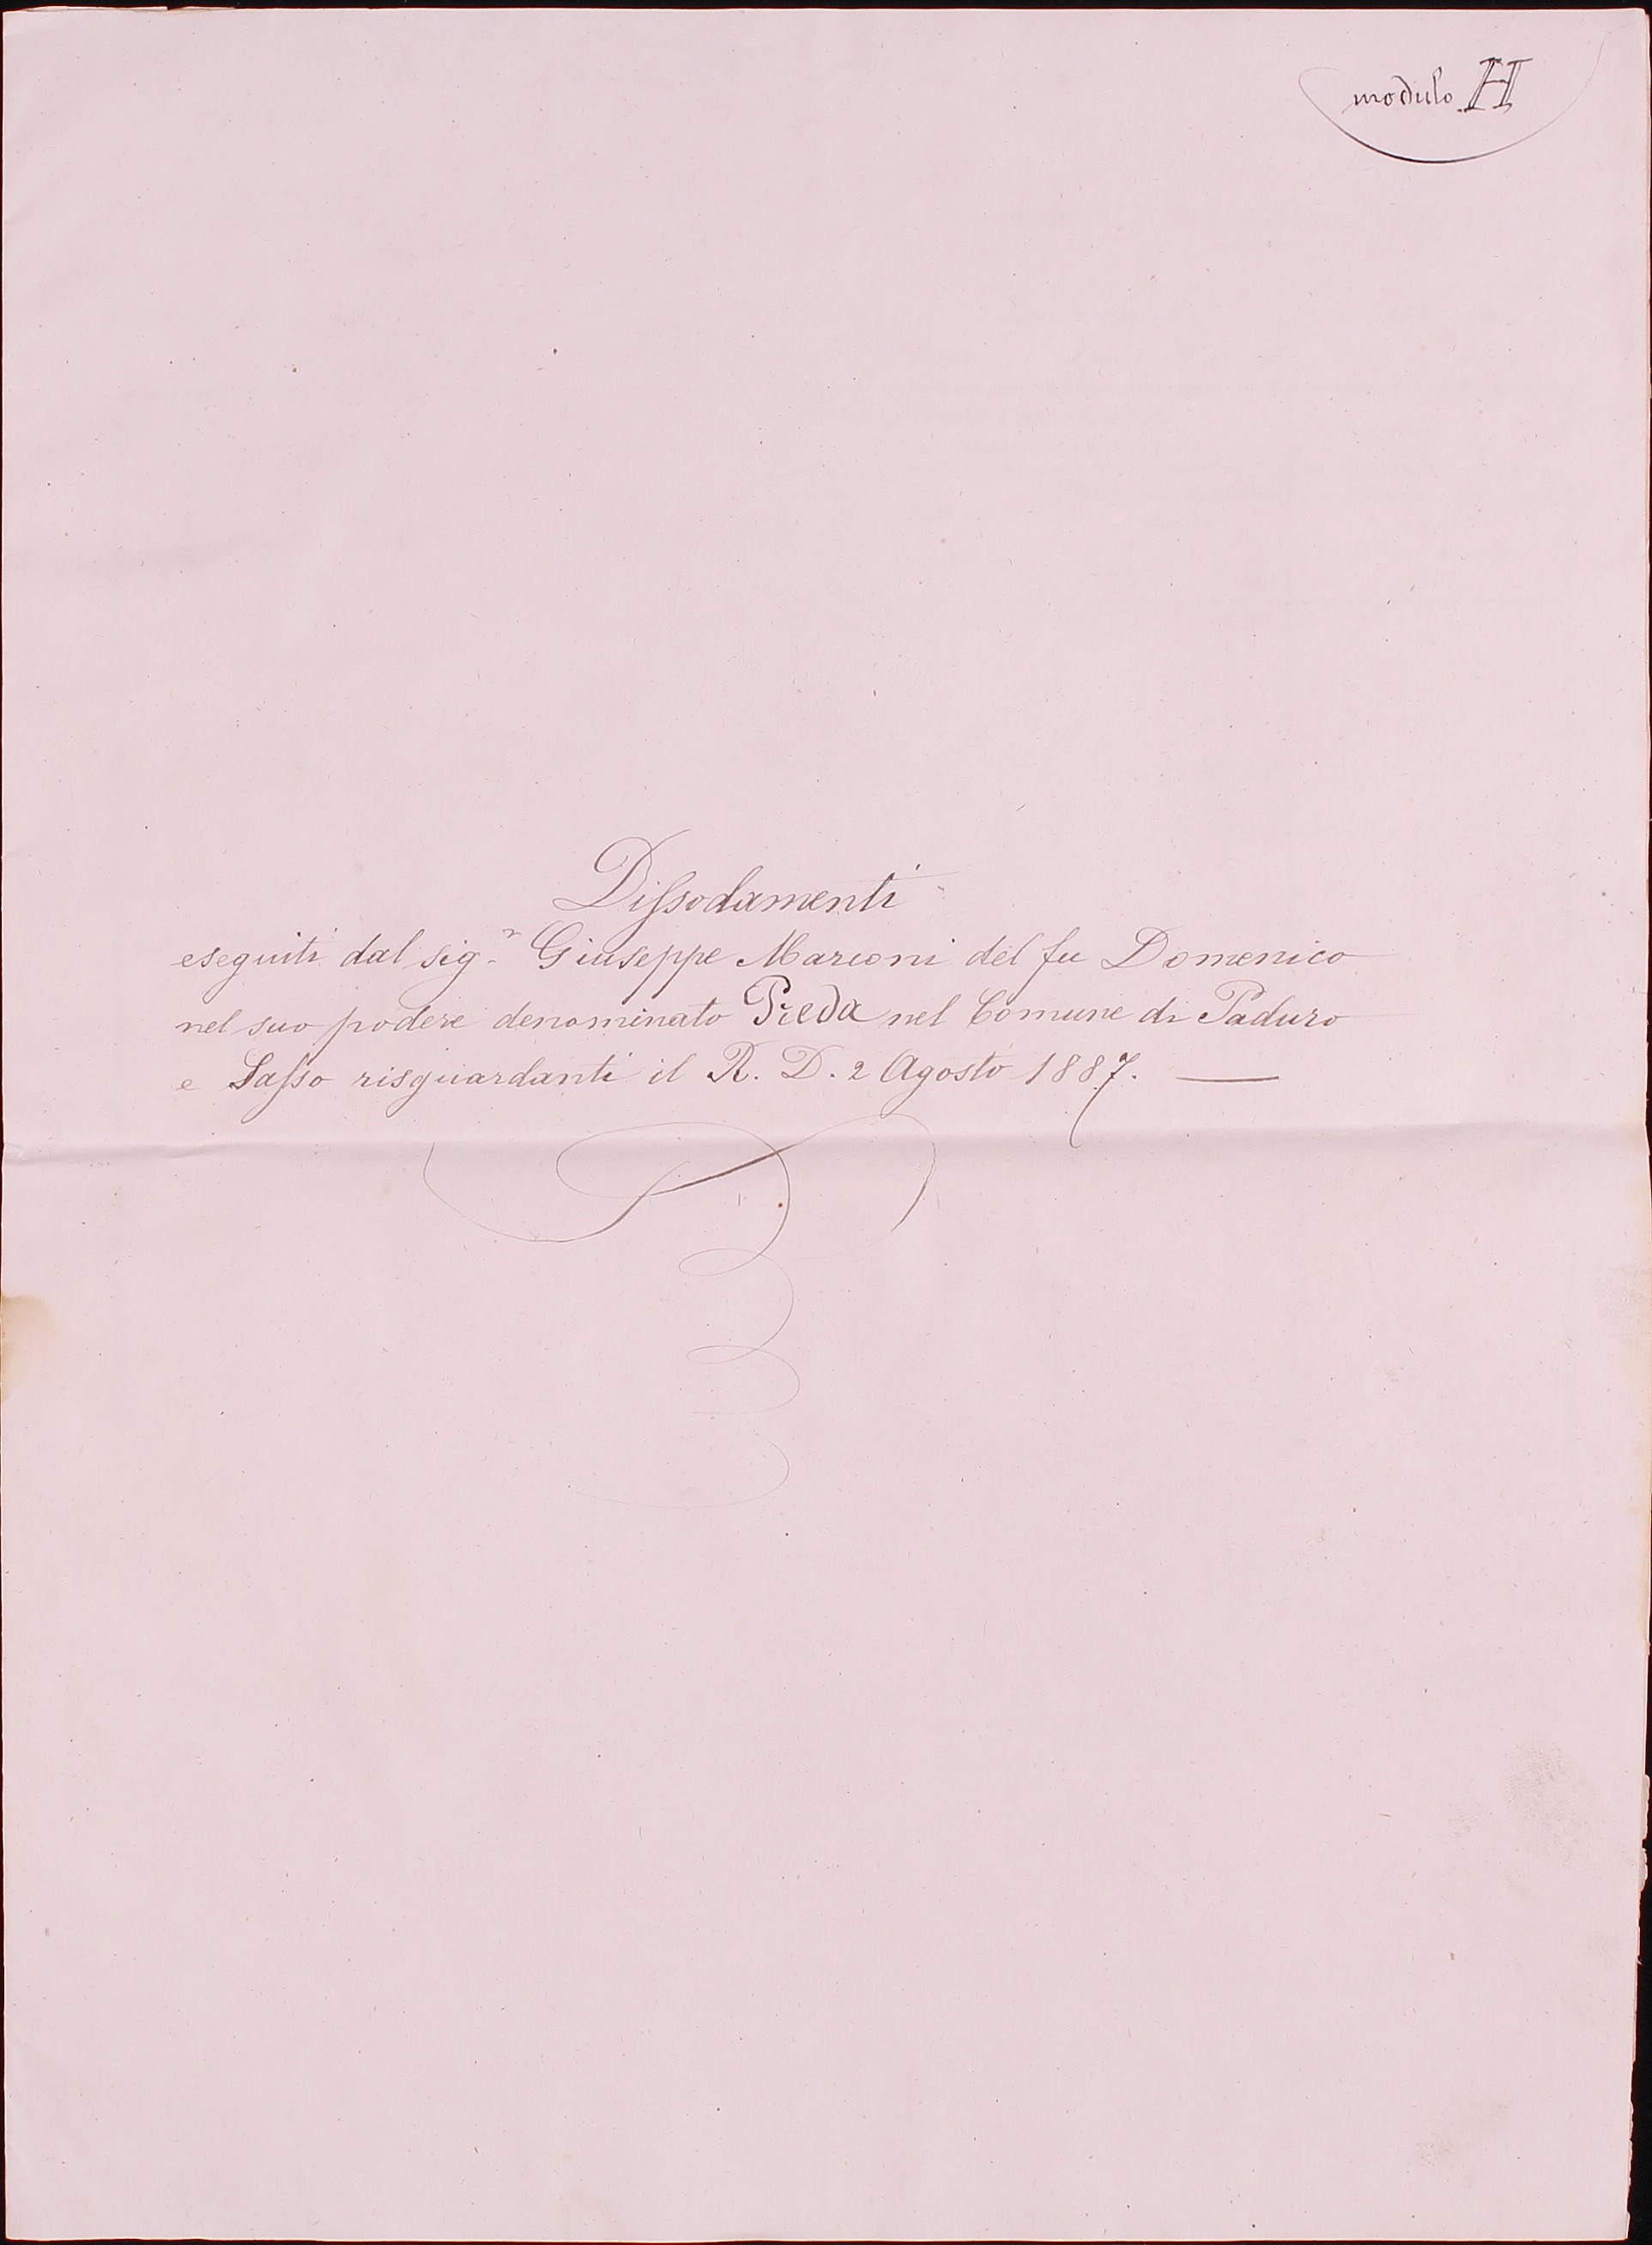 modulo H
Dissodamenti
eseguiti dal sig.r Giuseppe Marconi del fu Domenico
nel suo podere denominato Preda nel Comune di Paduro
e Sasso risguardanti il R. D. 2 Agosto 1887. —